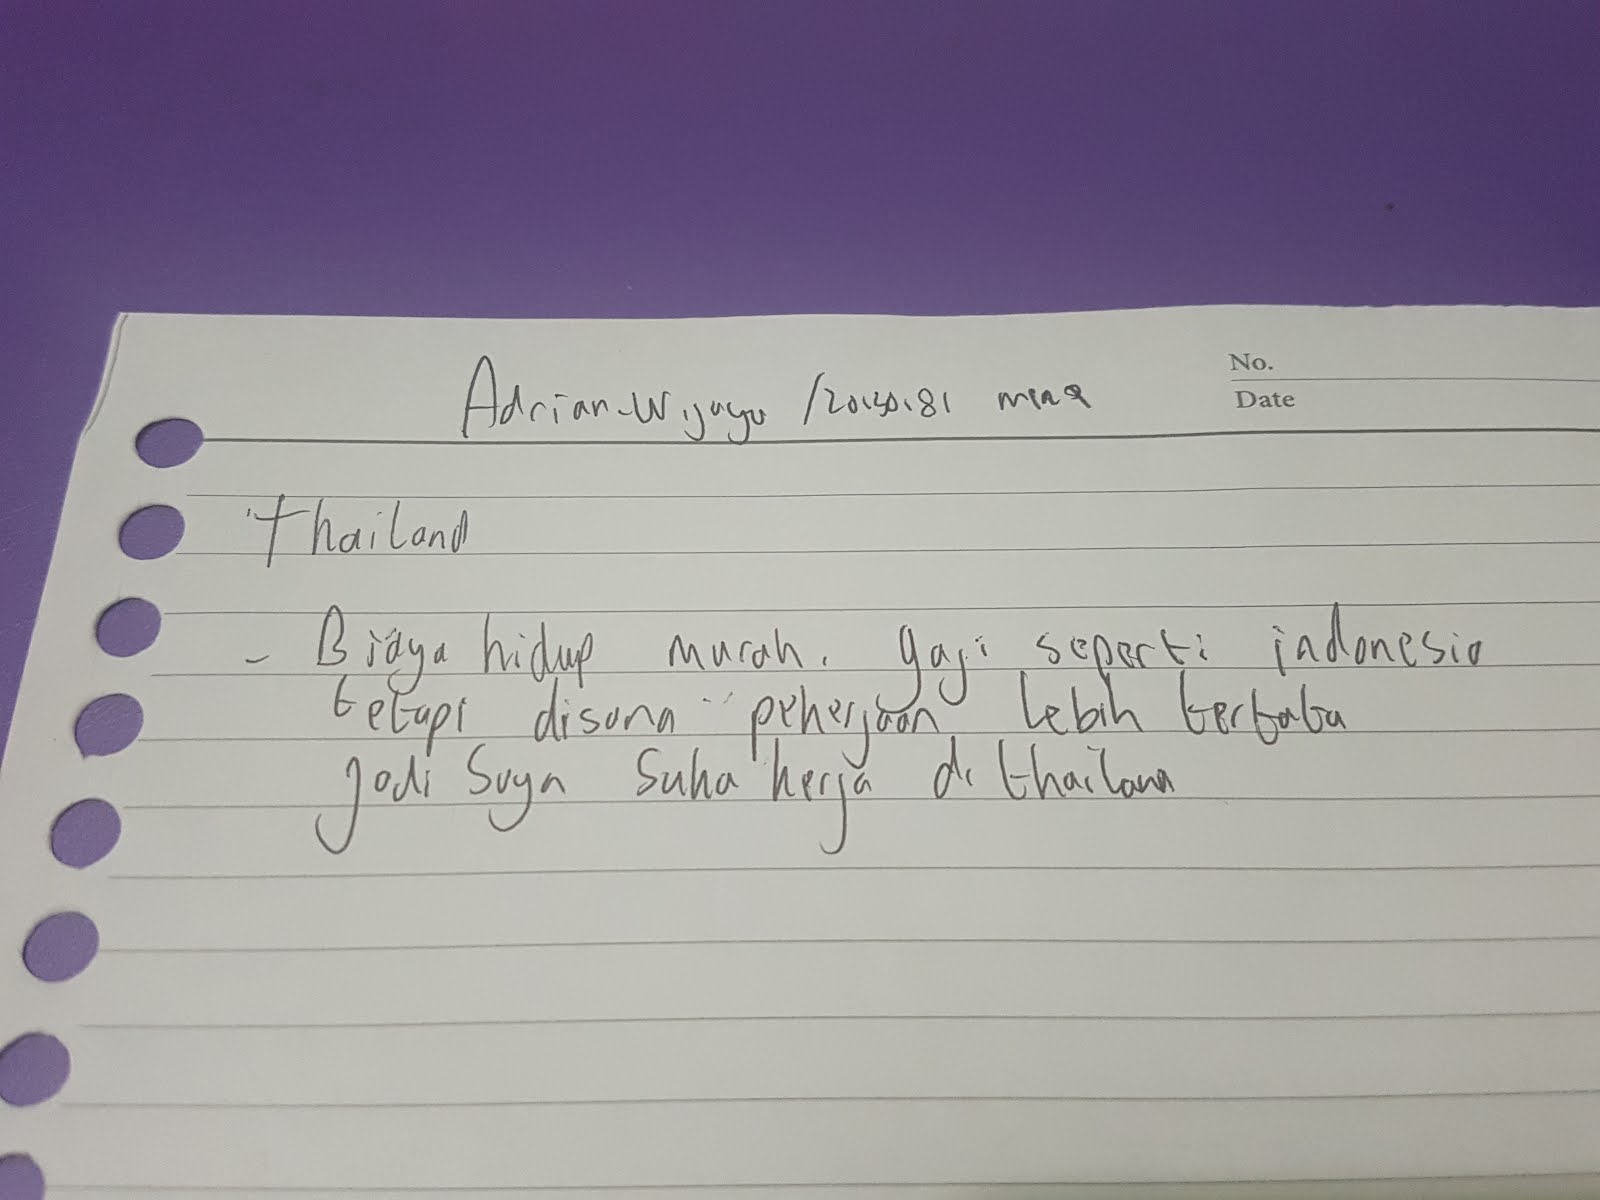 Adrian Wijaya /20130181
No.
Date
Thailand
- Biaya hidup murah. gaji seperti indonesia
tetapi disana pekerjaan lebih tertata
jadi saya suka kerja di thailand